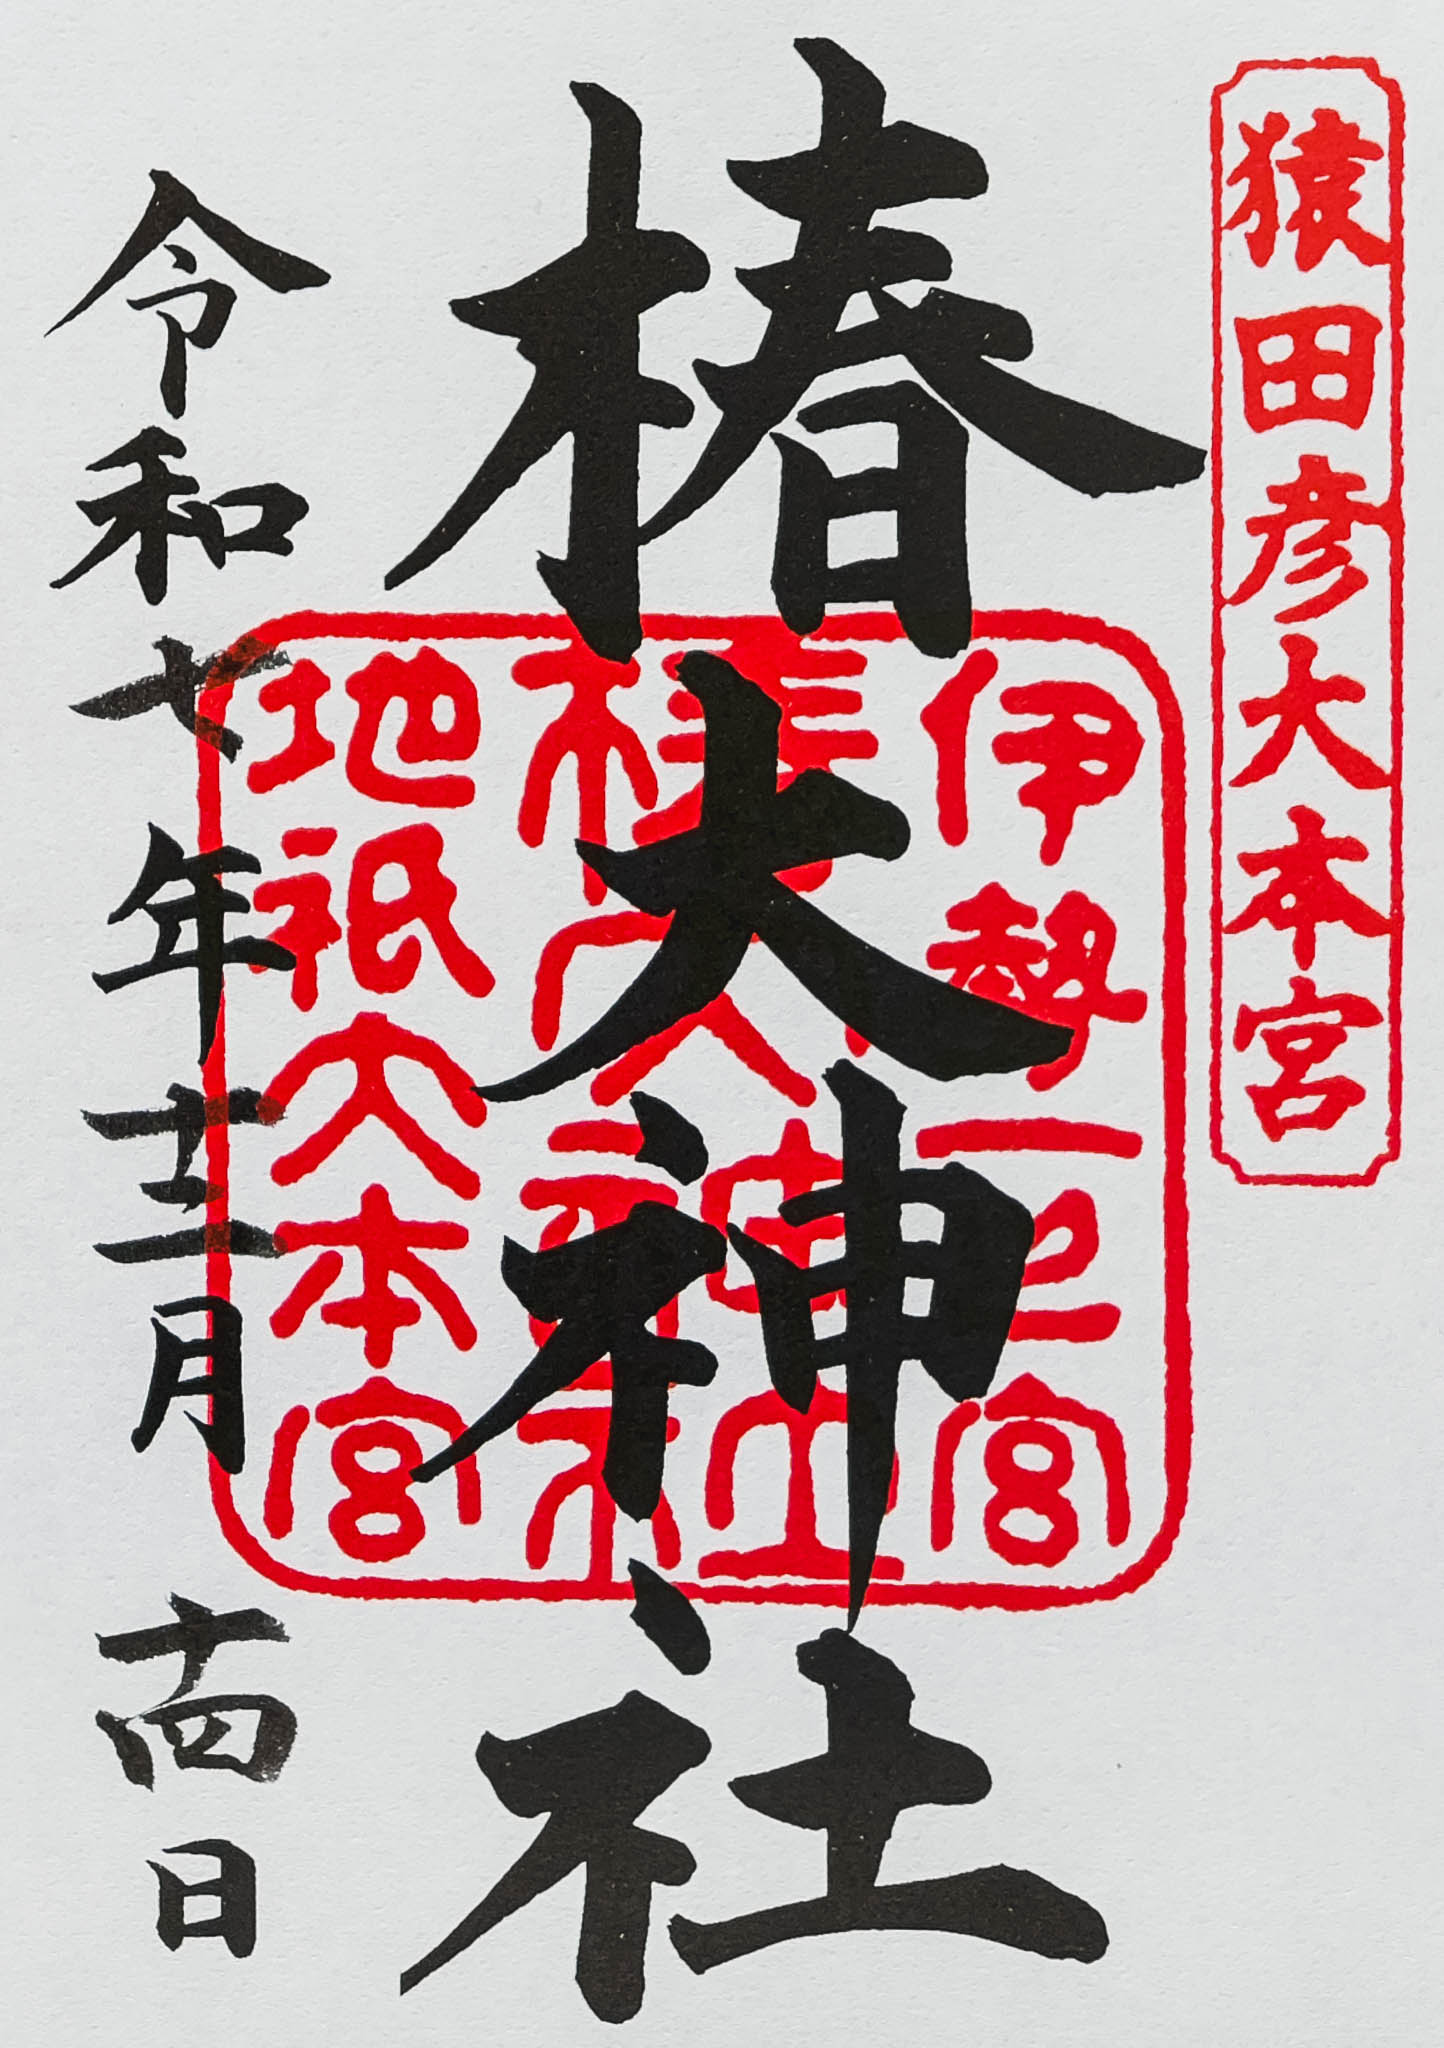 猿田彦大本宮
伊勢一之宮
椿大神社
地祇大本宮
椿大神社
令和七年十二月十四日